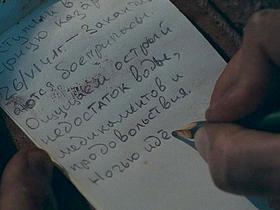 ступил в
жную казар
26/VI 41г.— Заканчи
аются боеприпасы.
Ощущаем острый
недостаток воды,
медикаментов и
продовольствия.
Ночью идё